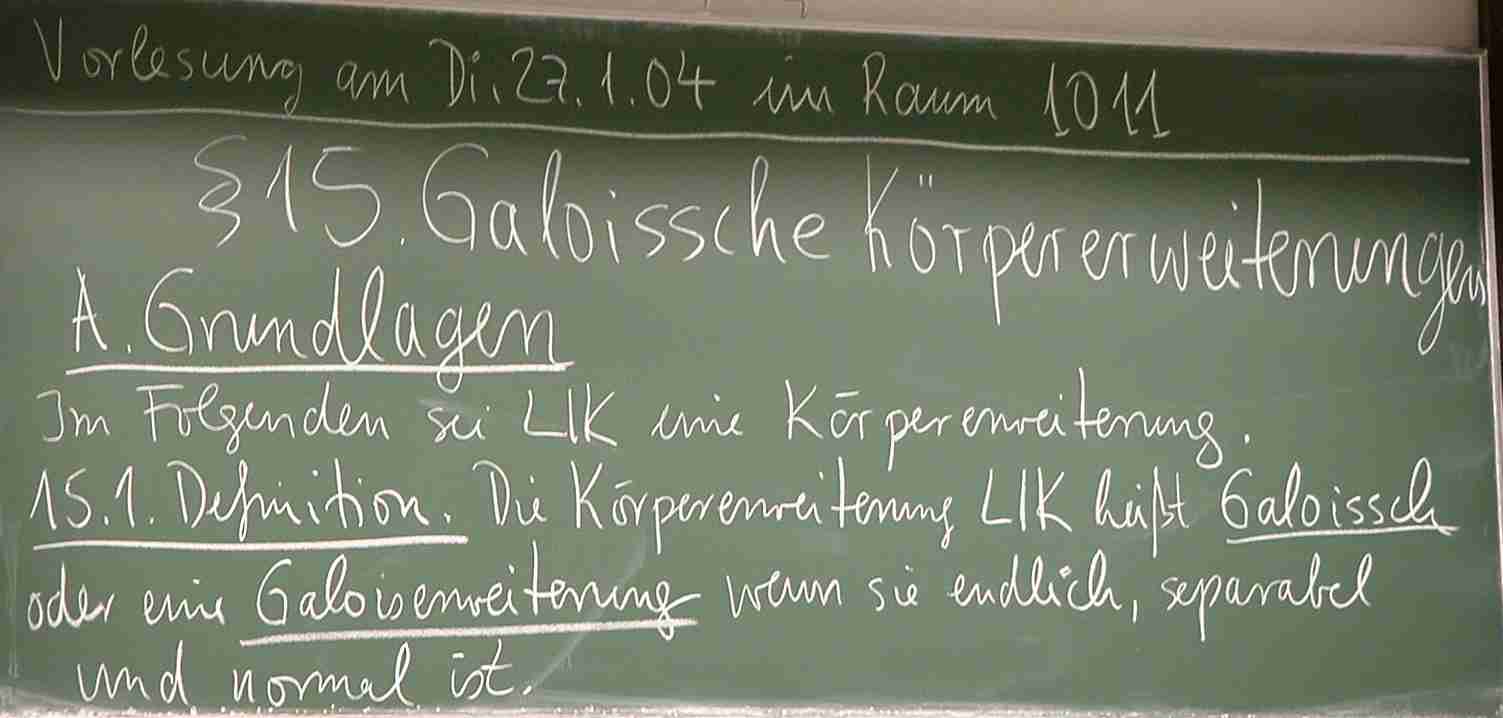 Vorlesung am Di. 27.1.04 im Raum 1011
§15. Galoissche Körpererweiterungen
A. Grundlagen
Im Folgenden sei L|K eine Körpererweiterung.
15.1. Definition. Die Körpererweiterung L|K heißt Galoissch
oder eine Galoiserweiterung wenn sie endlich, separabel
und normal ist.